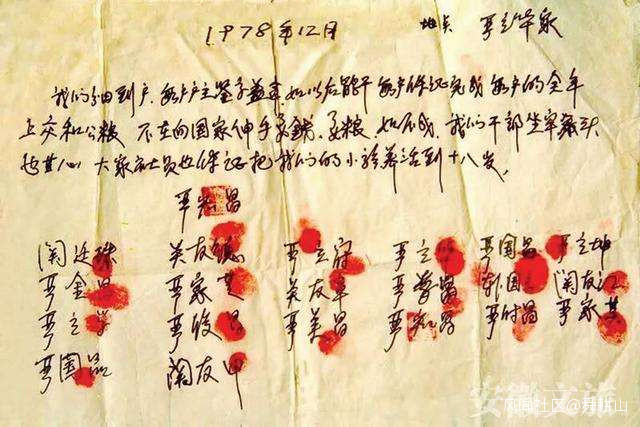 1978年12月 地点 严立华家
我们分田到户,每户户主签字盖章,如以后能干,每户保证完成每户的全年
上交和公粮 不在向国家伸手要钱,要粮,如不成,我们干部坐牢杀头
也甘心,大家社员也保证把我们的小孩养活到十八岁,
严宏昌
关廷珠 关友德 严立符 严立华 严国昌 严立坤
严金昌 严家芝 关友章 严学昌 韩国云 关友江
严立学 严俊昌 严美昌 严宏昌 严付昌 严家其
严国品 关友申
安徽文旅